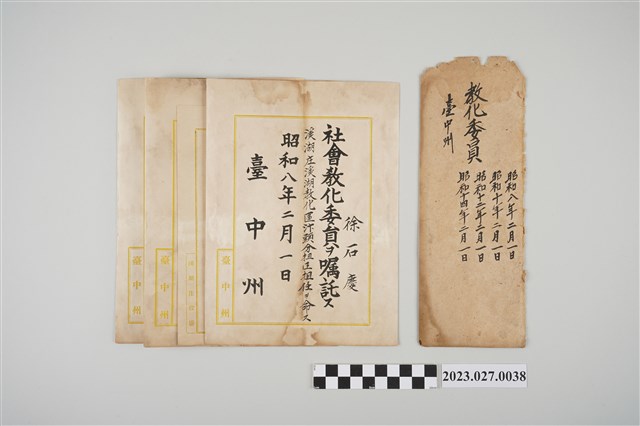 徐石慶
社會教化委員ヲ囑託ス
溪湖庄溪湖教化區汴頭分組正担任ヲ命ス
昭和八年二月一日
臺中州
臺中州
臺中州
臺中州
教化委員
臺中州
昭和八年二月一日
昭和十年二月一日
昭和十二年二月一日
昭和十四年二月一日
2023.027.0038